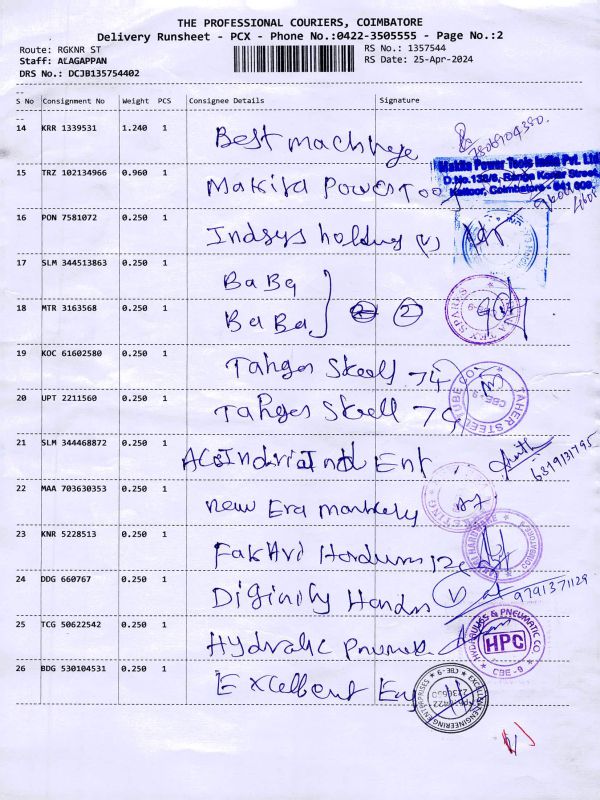 THE PROFESSIONAL COURIERS, COIMBATORE
Delivery Runsheet - PCX - Phone No.:0422-3505555 - Page No.:2
Route: RGKNR ST
RS No.: 1357544
Staff: ALAGAPPAN
RS Date: 25-Apr-2024
DRS No.: DCJB135754402
S No Consignment No Weight PCS Consignee Details Signature
14 KRR 1339531 1.240 1 Best machinge
7806904380.
15 TRZ 102134966 0.960 1 Makita Power Tools
Makita Power Tools India Pvt. Ltd
D.No.138/6, Ranga Konar Street,
Kattoor, Coimbatore - 641 009.
16 PON 7581072 0.250 1 Indsys holding (v)
17 SLM 344513863 0.250 1 BaBa
18 MTR 3163568 0.250 1 BaBa 2 2
19 KOC 61602580 0.250 1 Taher Steels 74
20 UPT 2211560 0.250 1 Taher Steell 74
TAHER STEEL TUBE CO.
CBE-9
21 SLM 344468872 0.250 1 Ace Indrial Ent
6319131795
22 MAA 703630353 0.250 1 new Era markely
23 KNR 5228513 0.250 1 Fakhri Hardwers
24 DDG 660767 0.250 1 Diginity Hands (v)
9791371129
25 TCG 50622542 0.250 1 Hydralic Pnumatic
HYDRAULICS & PNEUMATIC CO
HPC
CBE - 9
26 BDG 530104531 0.250 1 Excellent Eng
EXCELLENT ENGINEERING ENTERPRISES
CBE-9